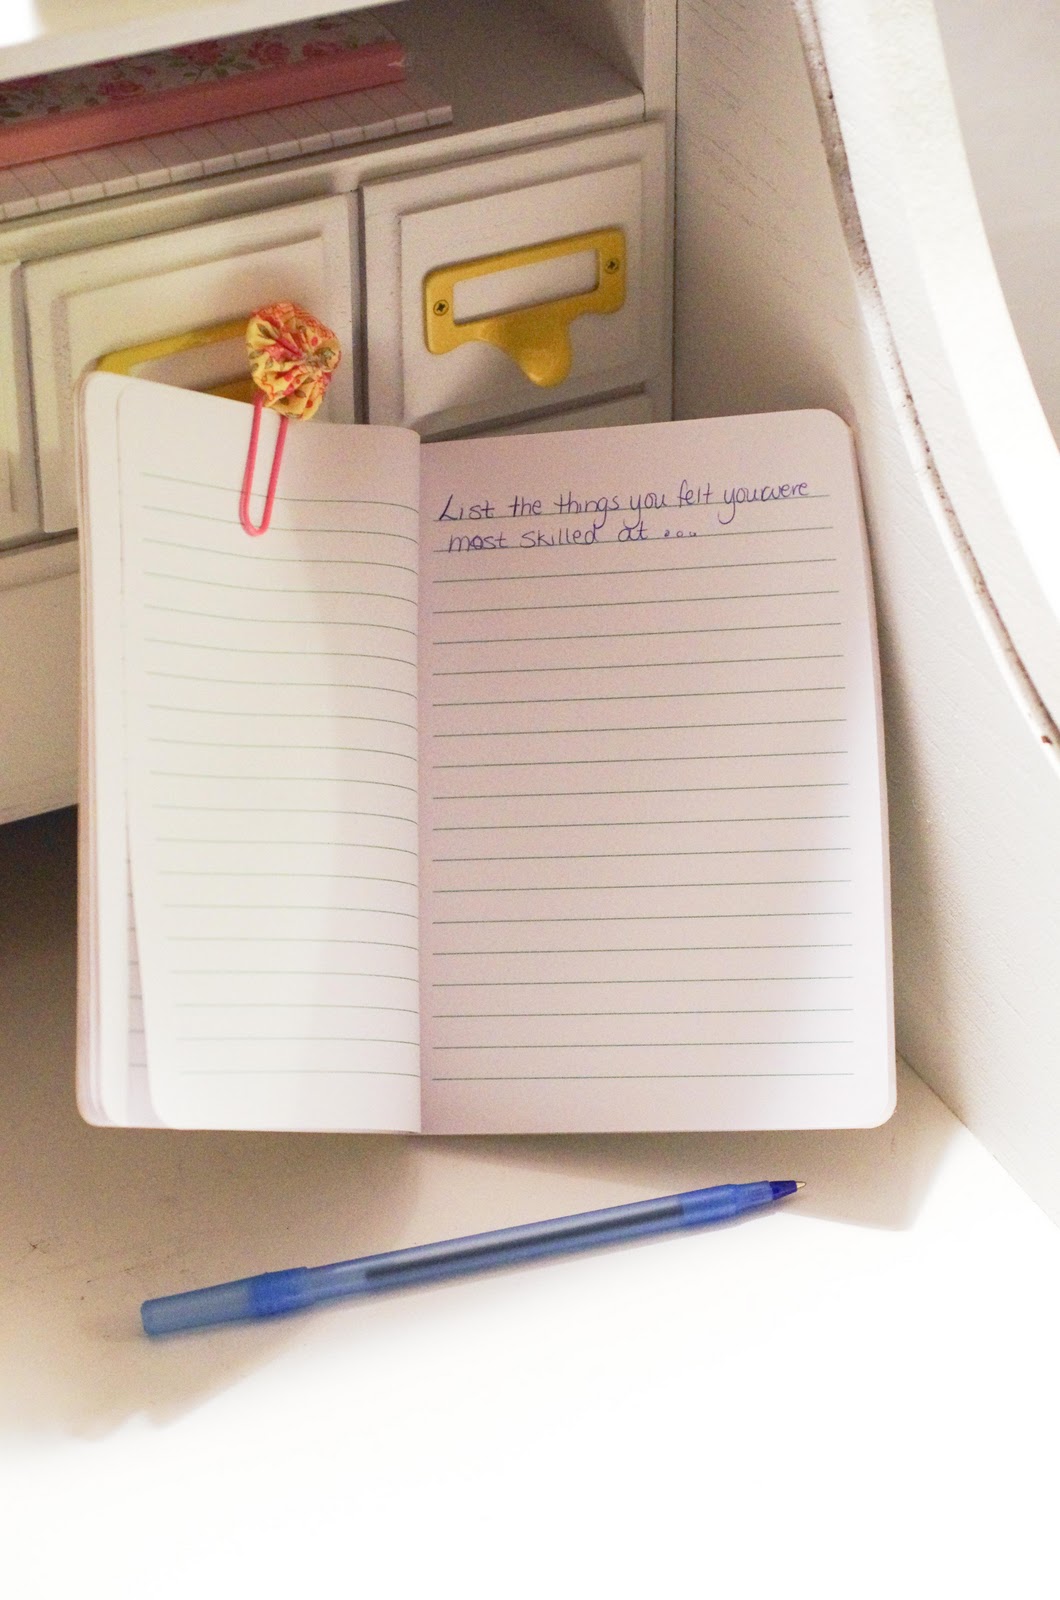 List the things you felt you were
most skilled at ...